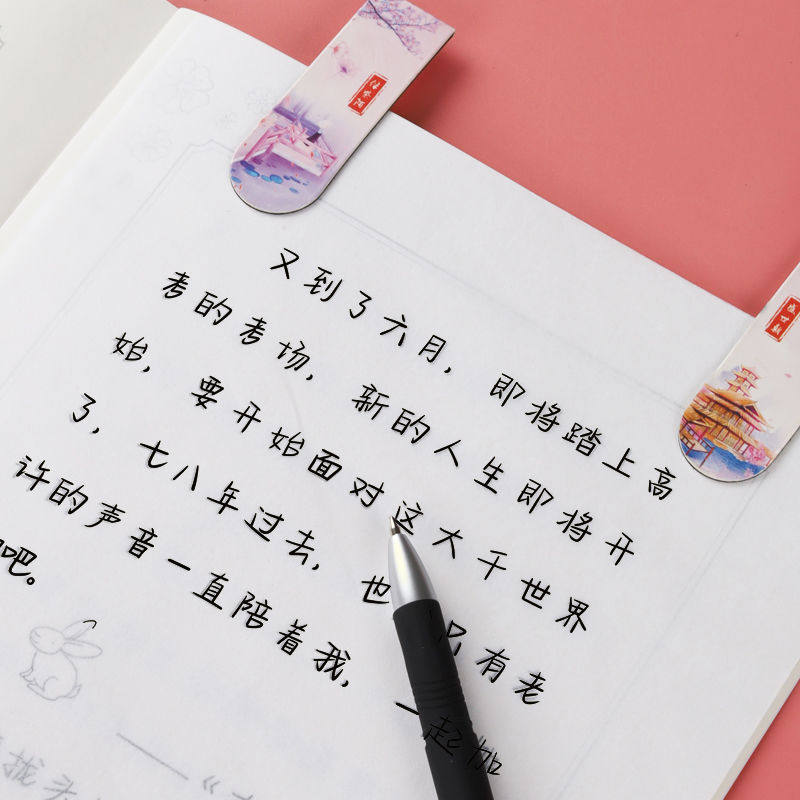 又到了六月，即将踏上高
考的考场，新的人生即将开
始，要开始面对这大千世界
了，七八年过去，也只有老
许的声音一直陪着我，一起加
吧。